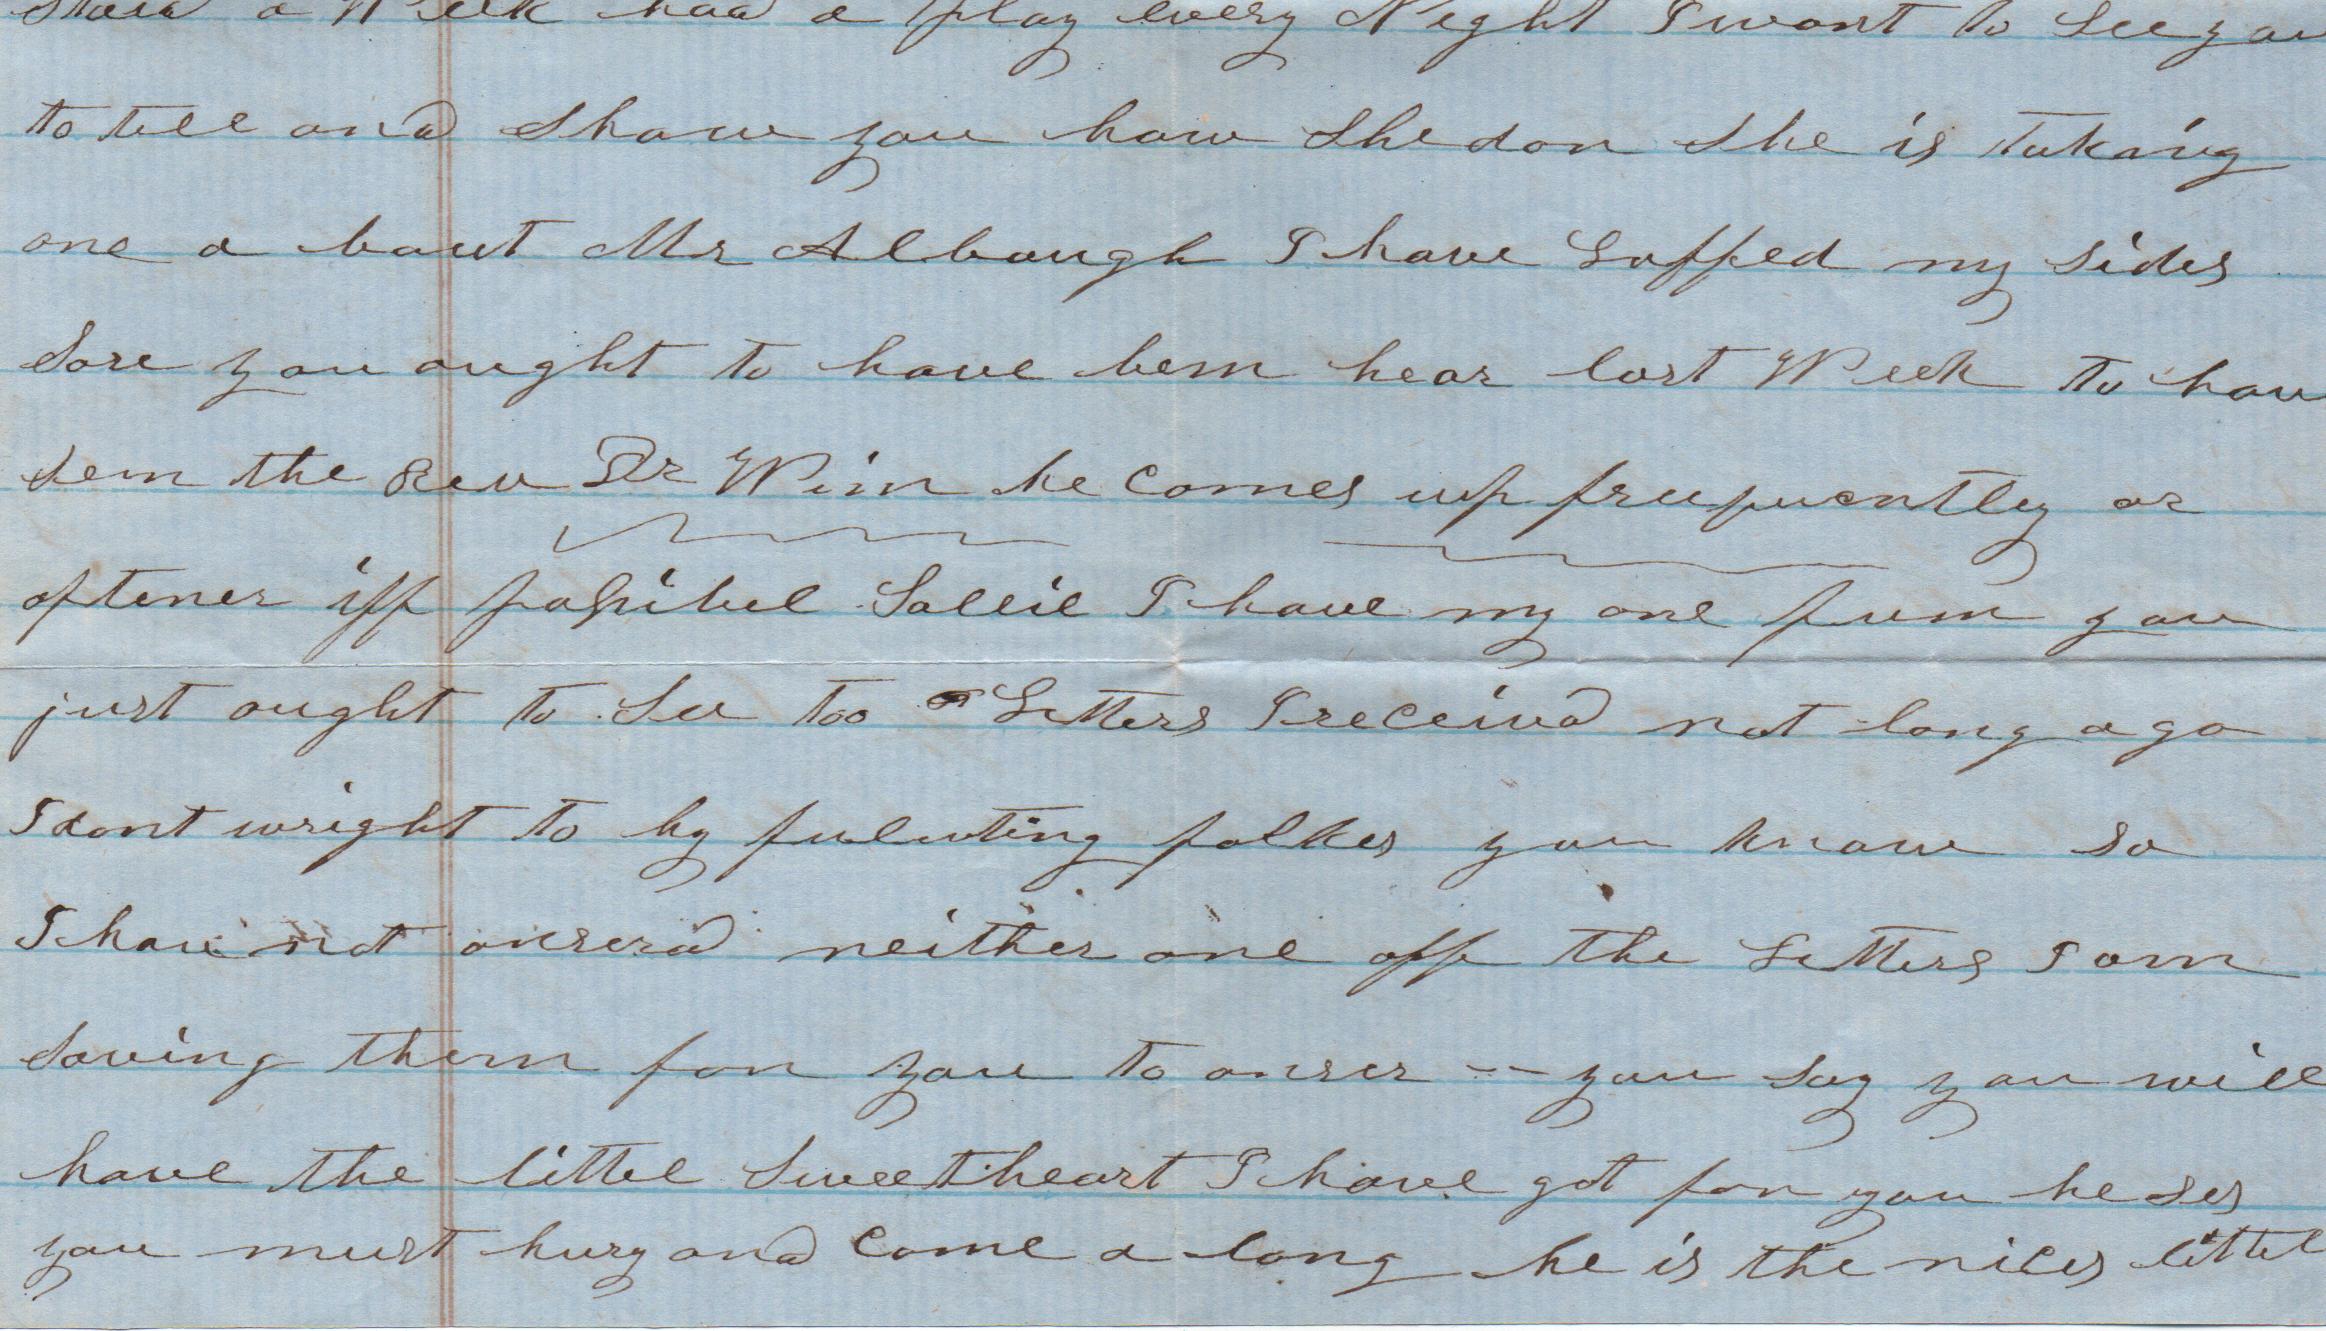 staid a Week had a play every Night I want to see you
to tell and Show you how She don She is Taking
one a bout Mr Albaugh I have Laffed my sides
Sore you ought to have bem hear last Week to hav
Sem the Rev Dr Winn he comes up frequently or
oftener iff possibel Sallie I have my one fum you
just ought to See too Letters I receivd not long a go
I dont wright to by folkes you know so
I have not anserd neither one off the Letters I am
Saving them for you to anser -- you Say you will
have the littel Sweetheart I have got for you he ses
you must hury and Come a long he is the nices littel